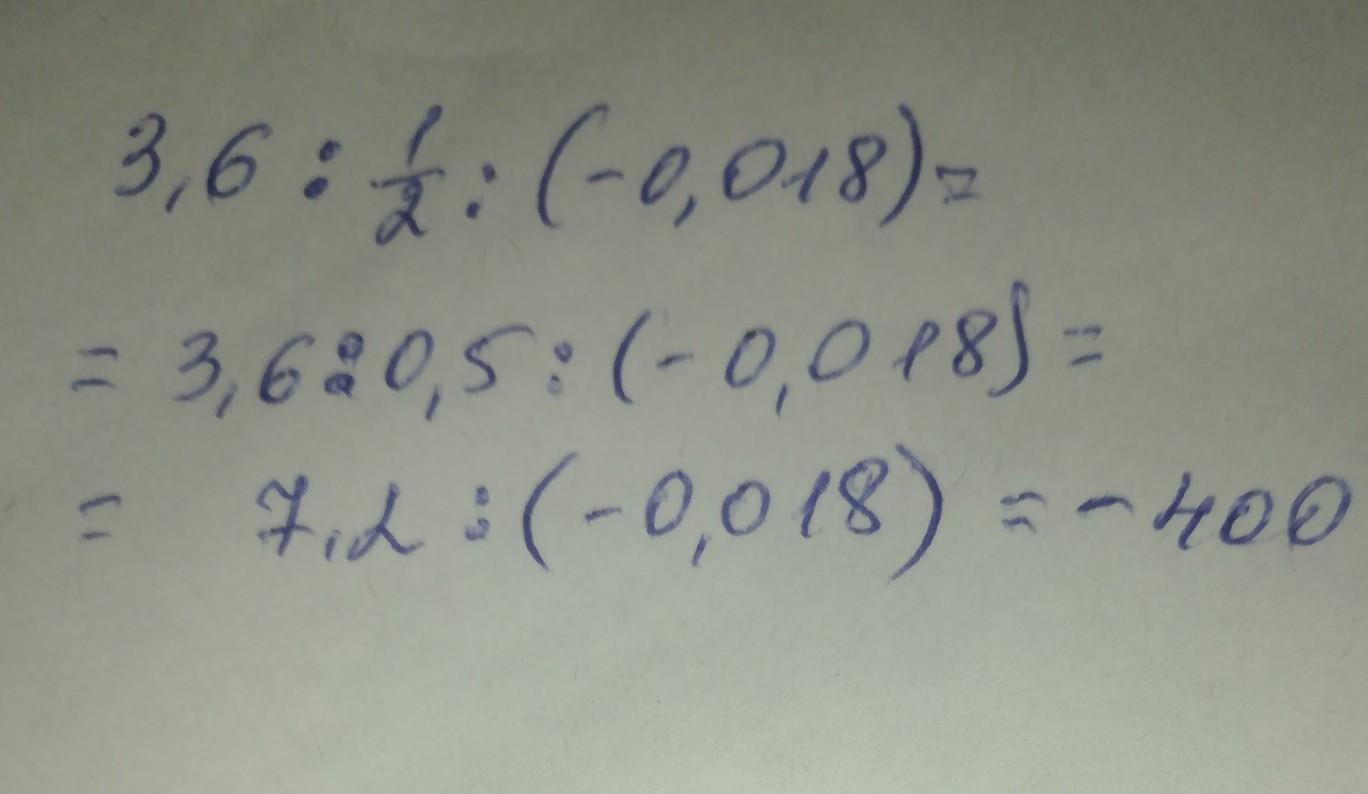 3,6 : 1/2 : (-0,018) =
= 3,6 : 0,5 : (-0,018) =
= 7,2 : (-0,018) = -400